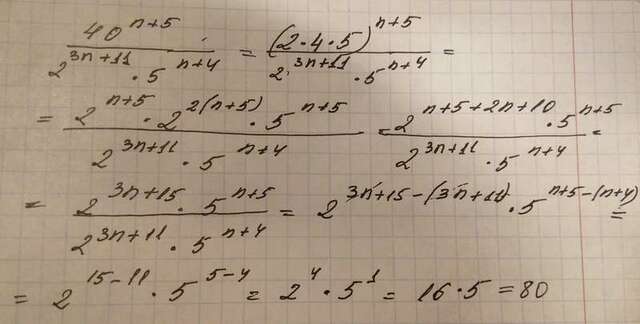 40^(n+5) / (2^(3n+11) · 5^(n+4)) = (2·4·5)^(n+5) / (2^(3n+11) · 5^(n+4)) =
= (2^(n+5) · 2^(2(n+5)) · 5^(n+5)) / (2^(3n+11) · 5^(n+4)) = (2^(n+5+2n+10) · 5^(n+5)) / (2^(3n+11) · 5^(n+4)) =
= (2^(3n+15) · 5^(n+5)) / (2^(3n+11) · 5^(n+4)) = 2^(3n+15-(3n+11)) · 5^(n+5-(n+4)) =
= 2^(15-11) · 5^(5-4) = 2^4 · 5^1 = 16·5 = 80